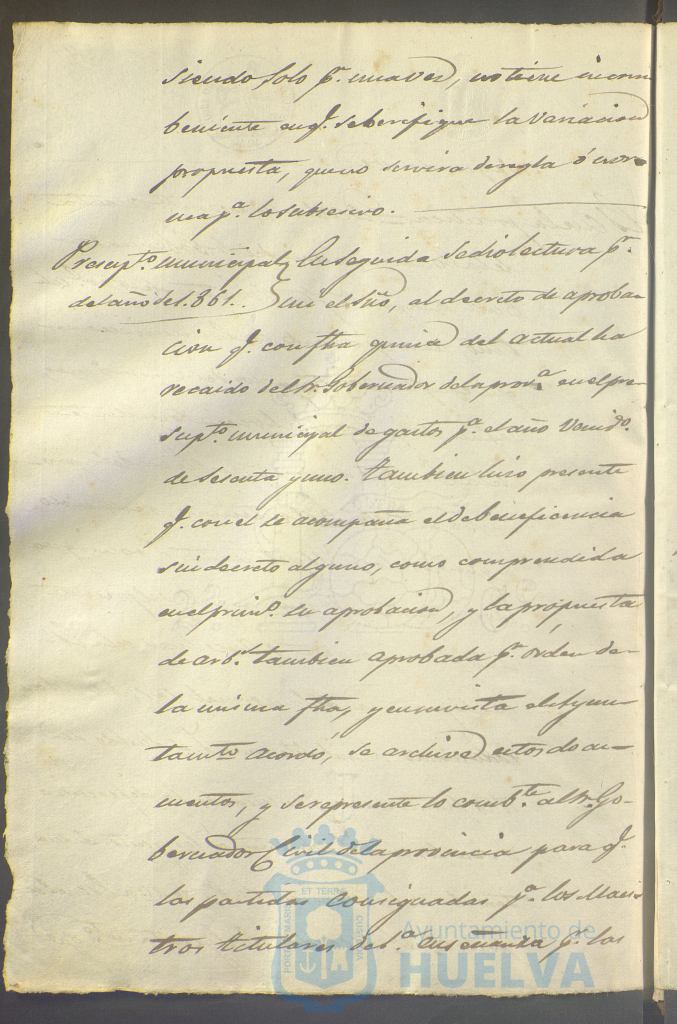 siendo solo pr. una vez, no tiene incom
beniente en q. se berifique la variacion
propuesta, que no servira de regla ó nor-
ma pa. lo subsesivo.
Presupto. municipal Enseguida se dio lectura pr.
del año de 1.861. mi el Srio, al decreto de aproba-
cion q. con fha quince del actual ha
recaido del Sr. Gobernador de la prova. en el pre-
supto. municipal de gastos pa. el año venido.
de sesenta y uno. Tambien hizo presente
q. con el se acompaña el de beneficencia
sin decreto alguno, como comprendida
en el primo. su aprobacion, y la propuesta
de arbs. tambien aprobada pr. orden de
la misma fha, y en su vista el Ayun-
tamto. acordó, se archive estos docu-
mentos, y se represente lo combte. al Sr. Go-
bernador Civil de la provincia para q.
las partidas consignadas pa. los Maes-
tros titulares de ba. enseñanza q. las
ET TERRA
PORTUS MARIS
CUSTODIA
Ayuntamiento de
HUELVA